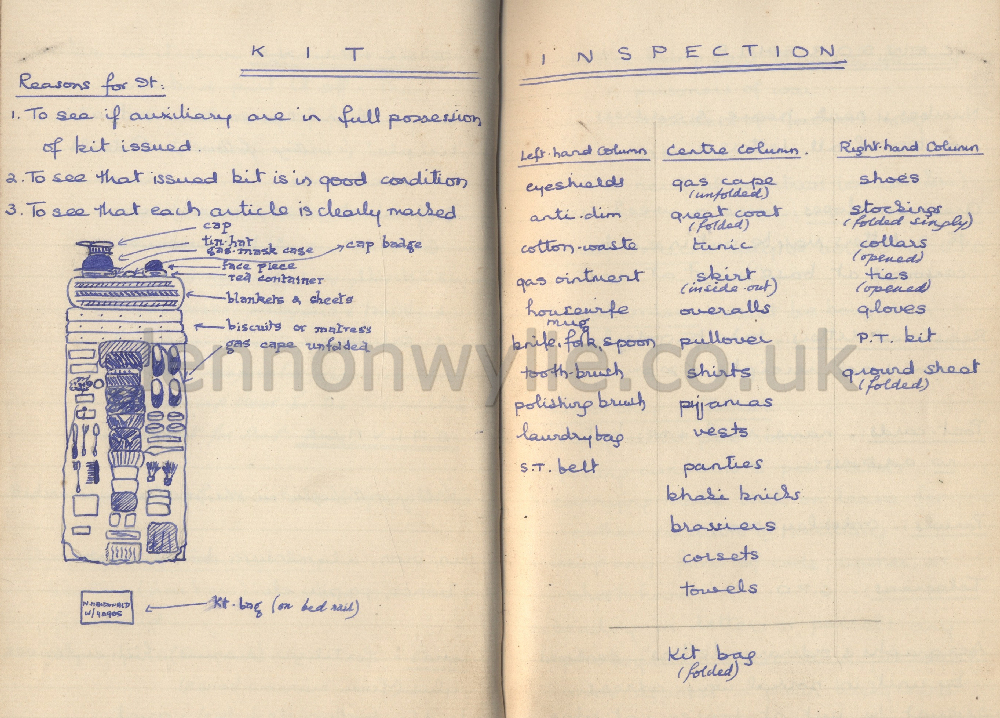 KIT INSPECTION
Reasons for It:
1. To see if auxiliary are in full possession
of kit issued.
2. To see that issued kit is in good condition
3. To see that each article is clearly marked
cap
tin-hat
gas-mask case
cap badge
face piece
red container
blankets & sheets
biscuits or matress
gas cape unfolded
W/
Kit-bag (on bed rail)
Left-hand Column
eyeshields
anti-dim
cotton-waste
gas ointment
housewife
mug
knife, fork, spoon
tooth-brush
polishing brush
laundry bag
S.T. belt
Centre Column.
gas cape
(unfolded)
great coat
(folded)
tunic
skirt
(inside-out)
overalls
pullover
shirts
pijamas
vests
panties
khaki knicks
brassiers
corsets
towels
Kit bag
(folded)
Right-hand Column
shoes
stockings
(folded simply)
collars
(opened)
ties
(opened)
gloves
P.T. kit
ground sheet
(folded)
lennonwylie.co.uk